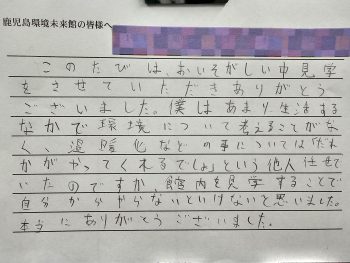 鹿児島環境未来館の皆様へ
このたびは、おいそがしい中見学
をさせていただきありがとう
ございました。僕はあまり生活する
なかで環境について考えることがな
く、温暖化などの事については「だれ
かがやってくれるでしょ」という他人任せで
いたのですが、館内を見学することで
自分からやらないといけないと思いました。
本当にありがとうございました。